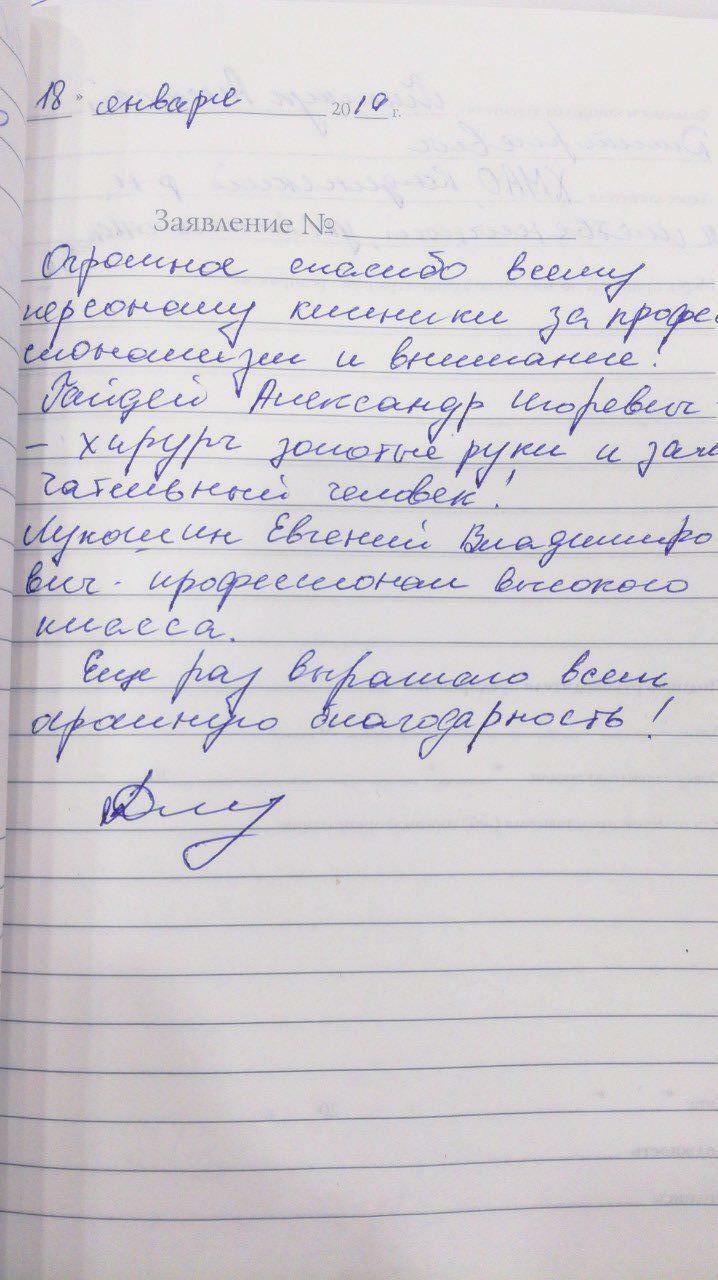 18 " января 2019 г.
Заявление №
Огромное спасибо всему
персоналу клиники за профес
сионализм и внимание!
Гайдей Александр Игоревич -
- хирург золотые руки и заме
чательный человек!
Лукошин Евгений Владимиро
вич - профессионал высокого
класса.
Еще раз выражаю всем
огромную благодарность!